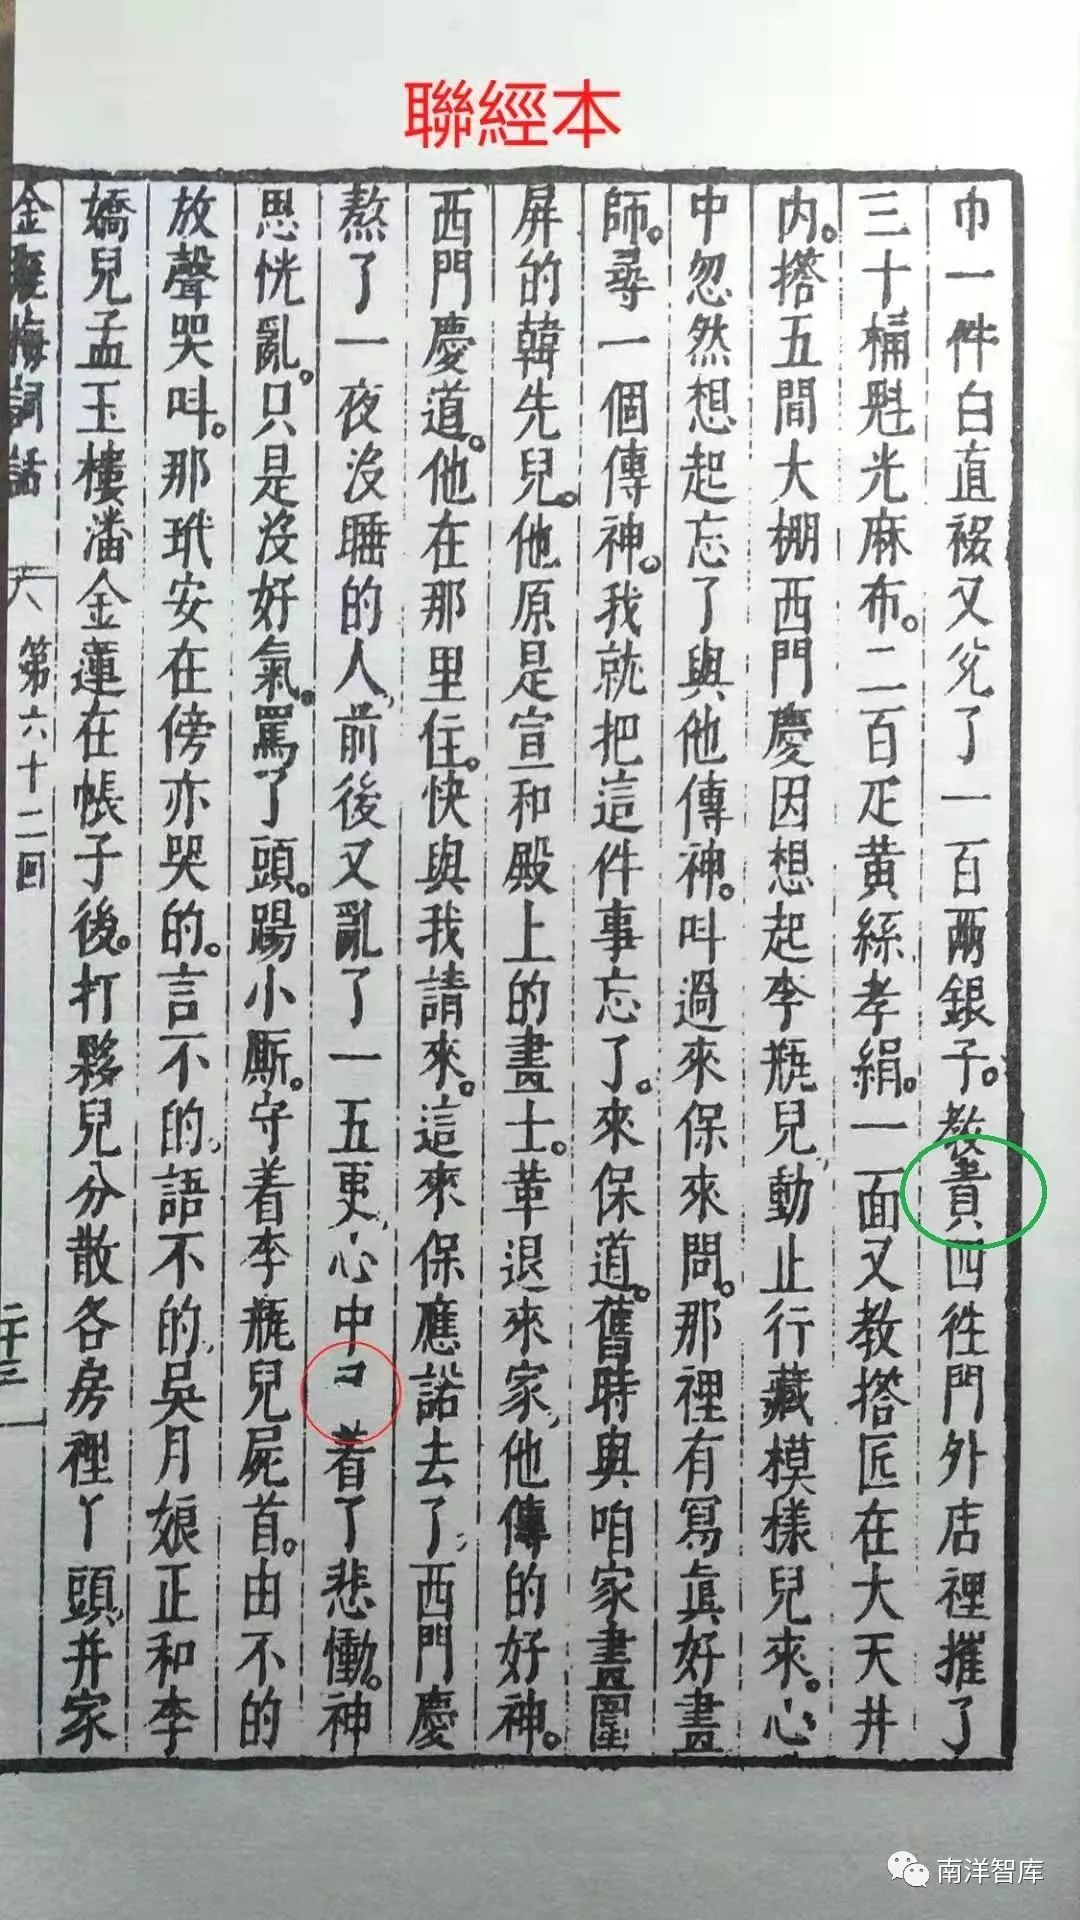 聯經本
巾一件白直裰又兊了一百兩銀子。教賁四徃門外店裡摧了
三十桶魁光麻布。二百疋黃絲孝絹。一面又教搭匠在大天井
内。搭五間大棚西門慶因想起李瓶兒動止行藏模樣兒來。心
中忽然想起忘了與他傳神。叫過來保來問。那裡有寫眞好畫
師。尋一個傳神。我就把這件事忘了。來保道。舊時與咱家畫圍
屏的韓先兒。他原是宣和殿上的畫士。革退來家他傳的好神。
西門慶道。他在那里住。快與我請來。這來保應諾去了西門慶
熬了一夜沒睡的人前後又亂了一五更心中 着了悲慟。神
思恍亂。只是没好氣。罵了頭。踢小厮。守着李瓶兒屍首。由不的
放聲哭叫。那玳安在傍亦哭的。言不的語不的吳月娘正和李
嬌兒孟玉樓潘金蓮在帳子後。打夥兒分散各房裡丫頭并家
金瓶梅詞話 第六十二回
南洋智库